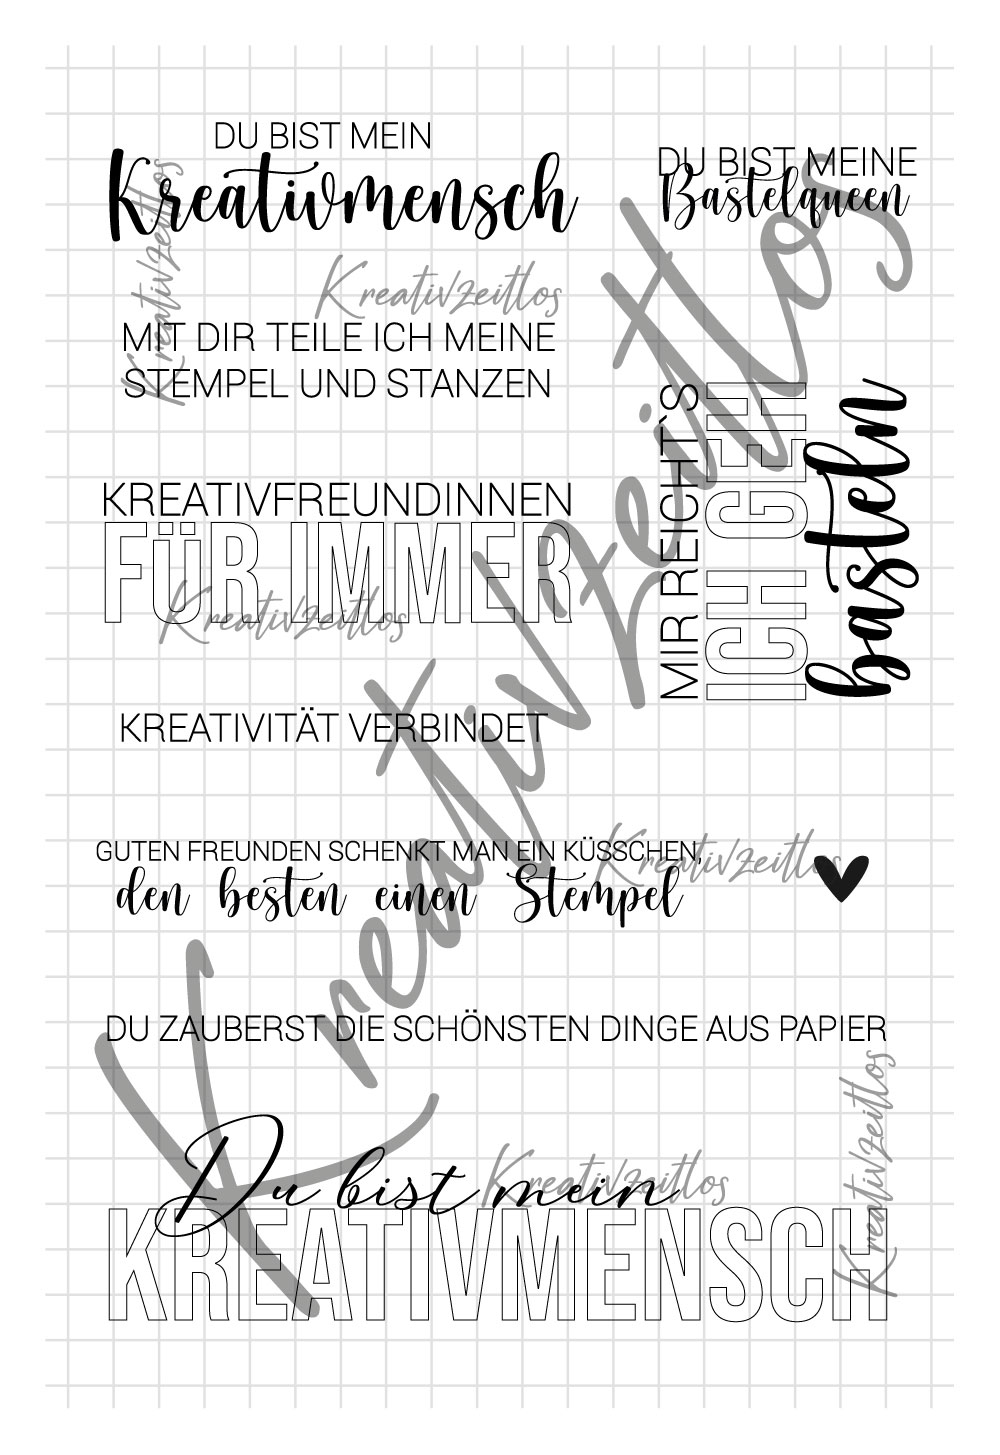 DU BIST MEIN
Kreativmensch
DU BIST MEINE
Bastelqueen
Kreativzeitlos
Kreativzeitlos
MIT DIR TEILE ICH MEINE
STEMPEL UND STANZEN
MIR REICHT`S
ICH GEH
basteln
KREATIVFREUNDINNEN
FÜR IMMER
Kreativzeitlos
Kreativzeitlos
KREATIVITÄT VERBINDET
GUTEN FREUNDEN SCHENKT MAN EIN KÜSSCHEN,
den besten einen Stempel
Kreativzeitlos
DU ZAUBERST DIE SCHÖNSTEN DINGE AUS PAPIER
Du bist mein
KREATIVMENSCH
Kreativzeitlos
Kreativzeitlos